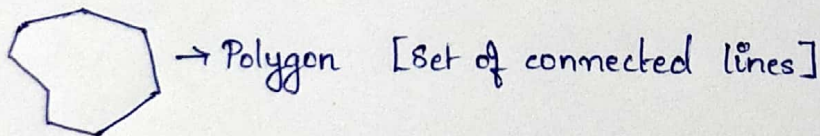 → Polygon [Set of connected lines]